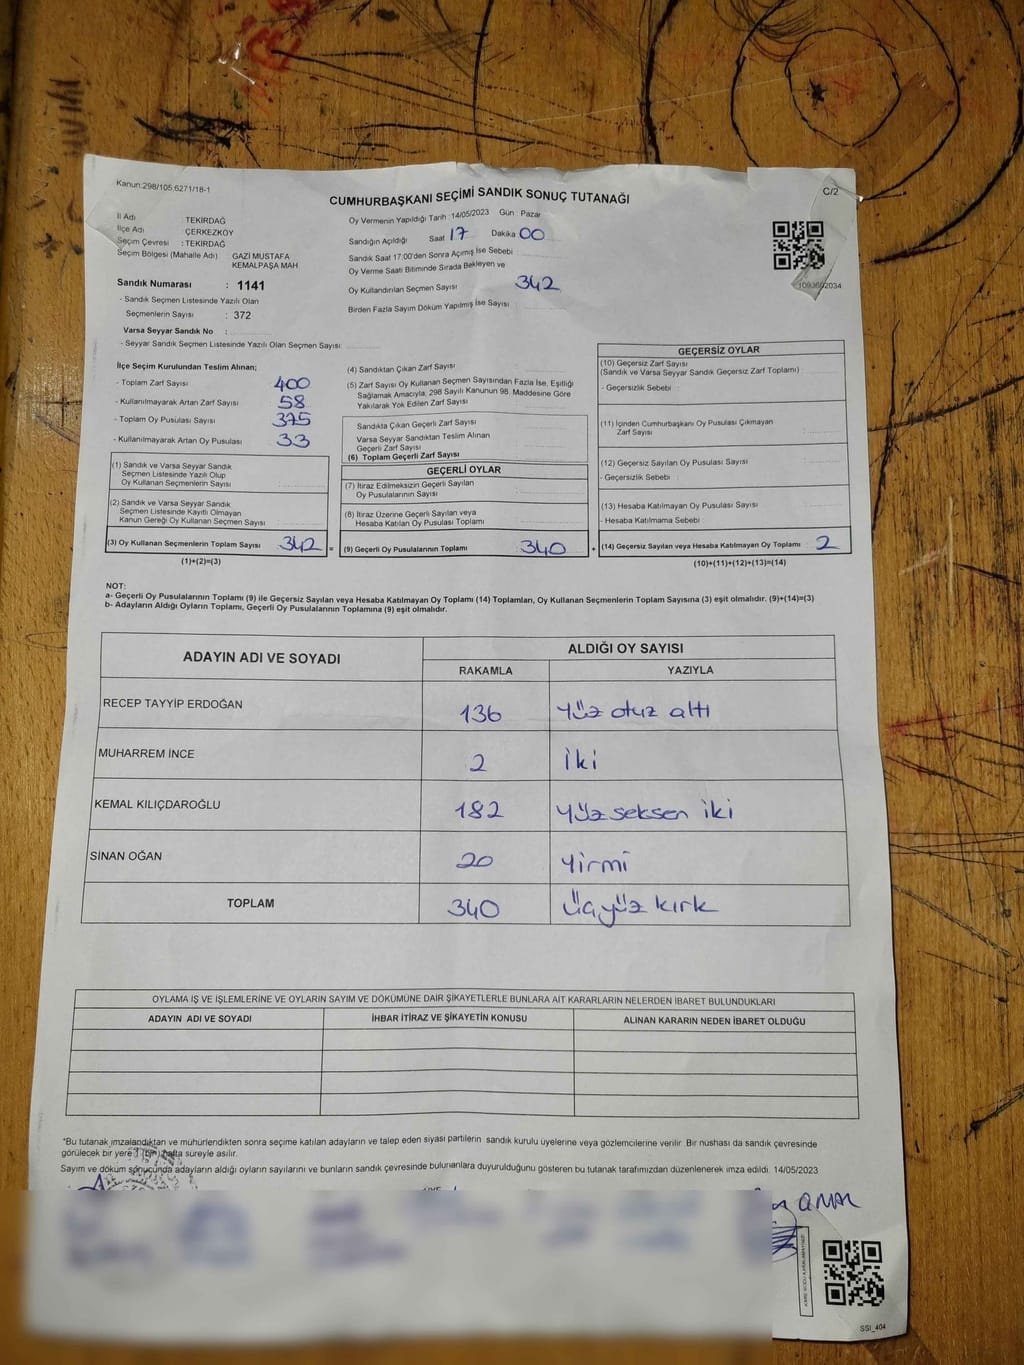 Kanun:298/105,6271/18-1
CUMHURBAŞKANI SEÇİMİ SANDIK SONUÇ TUTANAĞI
C/2
İl Adı TEKİRDAĞ
İlçe Adı ÇERKEZKÖY
Seçim Çevresi :TEKİRDAĞ
Seçim Bölgesi (Mahalle Adı) GAZİ MUSTAFA
KEMALPAŞA MAH
Sandık Numarası : 1141
- Sandık Seçmen Listesinde Yazılı Olan
Seçmenlerin Sayısı : 372
Varsa Seyyar Sandık No :
- Seyyar Sandık Seçmen Listesinde Yazılı Olan Seçmen Sayısı:
Oy Vermenin Yapıldığı Tarih 14/05/2023 Gün Pazar
Sandığın Açıldığı Saat 17 Dakika 00
Sandık Saat 17:00'den Sonra Açımış İse Sebebi
Oy Verme Saati Bitiminde Sırada Bekleyen ve
Oy Kullandırılan Seçmen Sayısı 342
Birden Fazla Sayım Döküm Yapılmış İse Sayısı
İlçe Seçim Kurulundan Teslim Alınan;
- Toplam Zarf Sayısı 400
- Kullanılmayarak Artan Zarf Sayısı 58
- Toplam Oy Pusulası Sayısı 375
- Kullanılmayarak Artan Oy Pusulası 33
(1) Sandık ve Varsa Seyyar Sandık
Seçmen Listesinde Yazılı Olup
Oy Kullanan Seçmen Sayısı
(2) Sandık ve Varsa Seyyar Sandık
Seçmen Listesinde Kayıtlı Olmayan
Kanun Gereği Oy Kullanan Seçmen Sayısı
(3) Oy Kullanan Seçmenlerin Toplam Sayısı 342 =
(1)+(2)=(3)
(4) Sandıktan Çıkan Zarf Sayısı
(5) Zarf Sayısı Oy Kullanan Seçmen Sayısından Fazla İse, Eşitliği
Sağlamak Amacıyla, 298 Sayılı Kanunun 98. Maddesine Göre
Yakılarak Yok Edilen Zarf Sayısı
Sandıkta Çıkan Geçerli Zarf Sayısı
Varsa Seyyar Sandıktan Teslim Alınan
Geçerli Zarf Sayısı
(6) Toplam Geçerli Zarf Sayısı
GEÇERLİ OYLAR
(7) İtiraz Edilmeksizin Geçerli Sayılan
Oy Pusulalarının Sayısı
(8) İtiraz Üzerine Geçerli Sayılan veya
Hesaba Katılan Oy Pusulası Toplamı
(9) Geçerli Oy Pusulalarının Toplamı 340 +
GEÇERSİZ OYLAR
(10) Geçersiz Zarf Sayısı
(Sandık ve Varsa Seyyar Sandık Geçersiz Zarf Toplamı)
- Geçersizlik Sebebi :
(11) İçinden Cumhurbaşkanı Oy Pusulası Çıkmayan
Zarf Sayısı
(12) Geçersiz Sayılan Oy Pusulası Sayısı
- Geçersizlik Sebebi :
(13) Hesaba Katılmayan Oy Pusulası Sayısı
- Hesaba Katılmama Sebebi :
(14) Geçersiz Sayılan veya Hesaba Katılmayan Oy Toplamı 2
(10)+(11)+(12)+(13)=(14)
NOT:
a- Geçerli Oy Pusulalarının Toplamı (9) ile Geçersiz Sayılan veya Hesaba Katılmayan Oy Toplamı (14) Toplamları, Oy Kullanan Seçmenlerin Toplam Sayısına (3) eşit olmalıdır. (9)+(14)=(3)
b- Adayların Aldığı Oyların Toplamı, Geçerli Oy Pusulalarının Toplamına (9) eşit olmalıdır.
ADAYIN ADI VE SOYADI
ALDIĞI OY SAYISI
RAKAMLA YAZIYLA
RECEP TAYYİP ERDOĞAN 136 Yüz otuz altı
MUHARREM İNCE 2 İki
KEMAL KILIÇDAROĞLU 182 Yüz seksen iki
SİNAN OĞAN 20 Yirmi
TOPLAM 340 Üçyüz kırk
OYLAMA İŞ VE İŞLEMLERİNE VE OYLARIN SAYIM VE DÖKÜMÜNE DAİR ŞİKAYETLERLE BUNLARA AİT KARARLARIN NELERDEN İBARET BULUNDUKLARI
ADAYIN ADI VE SOYADI İHBAR İTİRAZ VE ŞİKAYETİN KONUSU ALINAN KARARIN NEDEN İBARET OLDUĞU
*Bu tutanak imzalandıktan ve mühürlendikten sonra seçime katılan adayların ve talep eden siyasi partilerin sandık kurulu üyelerine veya gözlemcilerine verilir. Bir nüshası da sandık çevresinde
görülecek bir yere 1 (bir) hafta süreyle asılır.
Sayım ve döküm sonucunda adayların aldığı oyların sayılarını ve bunların sandık çevresinde bulunanlara duyurulduğunu gösteren bu tutanak tarafımızdan düzenlenerek imza edildi. 14/05/2023
SSI_404